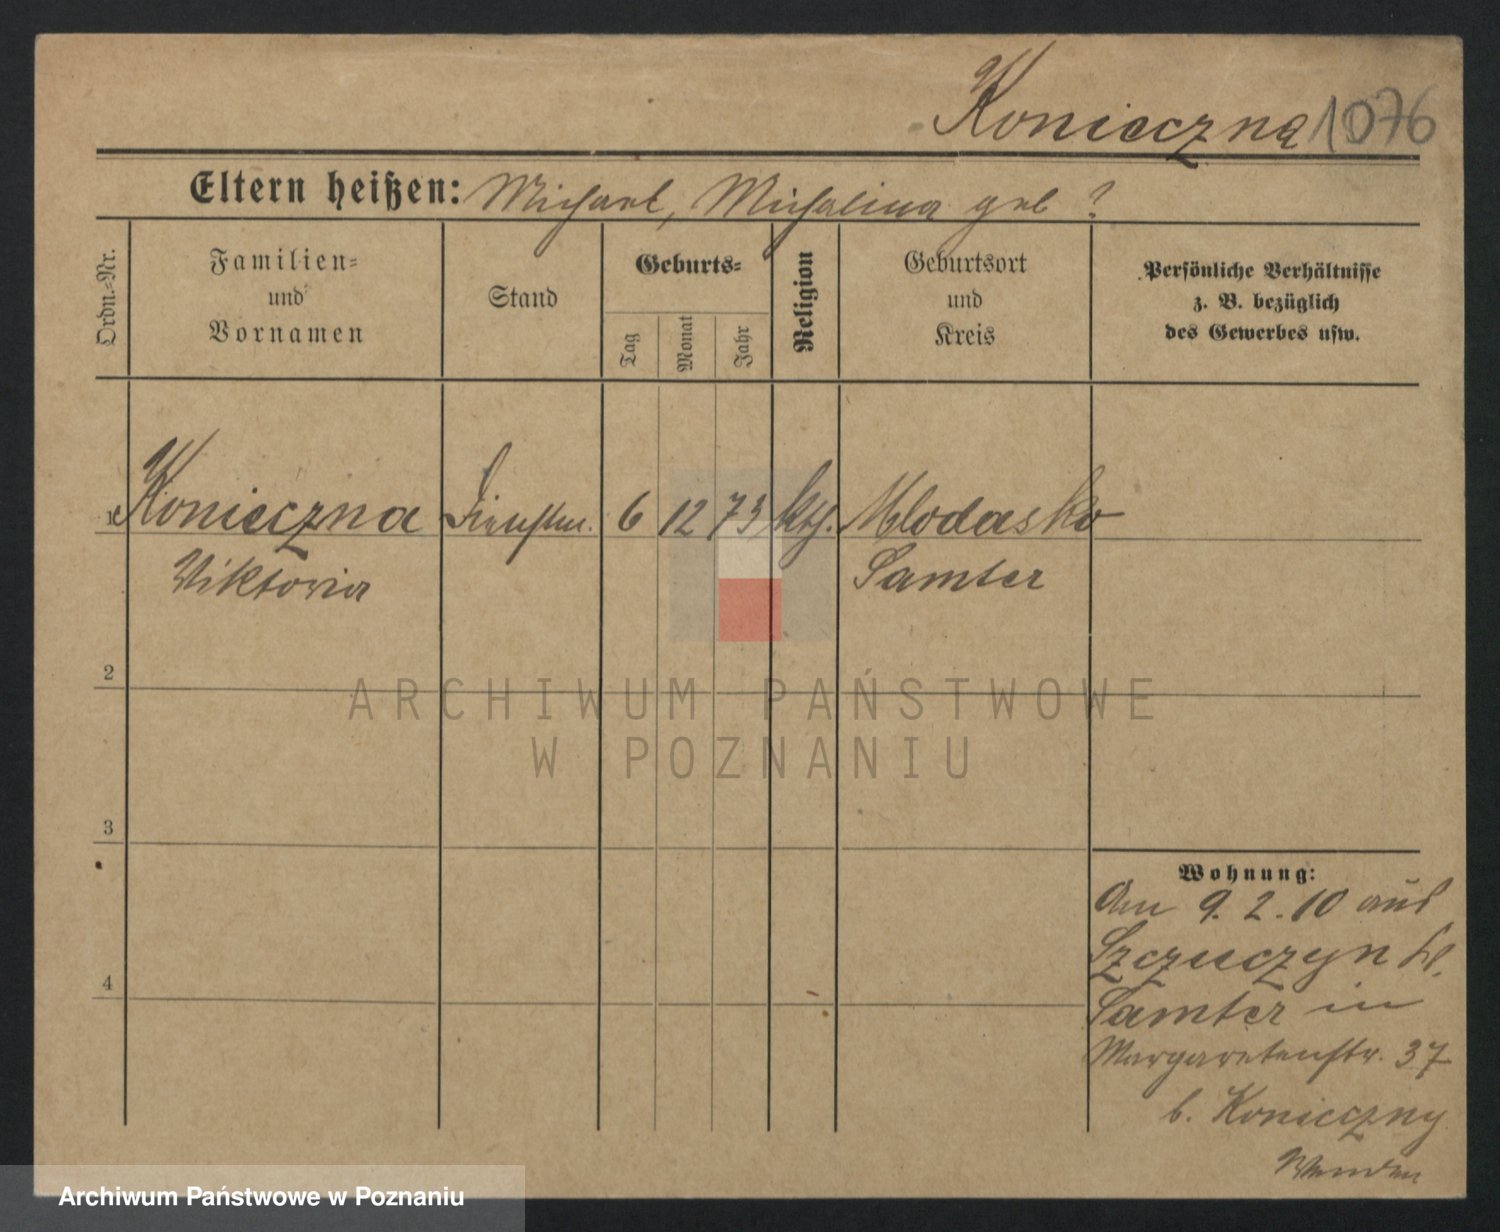 Konieczna 1076
Eltern heißen: Michael, Michalina geb ?
Ordn.-Nr.
Familien-
und
Vornamen
Stand
Geburts-
Tag
Monat
Jahr
Religion
Geburtsort
und
Kreis
Persönliche Verhältnisse
z. B. bezüglich
des Gewerbes usw.
1 Konieczna Dienstm. 6 12 73 kth. Mlodasko
Viktoria Samter
2
3
4
ARCHIWUM PAŃSTWOWE
W POZNANIU
Wohnung:
Am 9. 2. 10 aus
Szczuczyn
Samter in
Margaretenstr. 37
b. Konieczny
Wenden
Archiwum Państwowe w Poznaniu